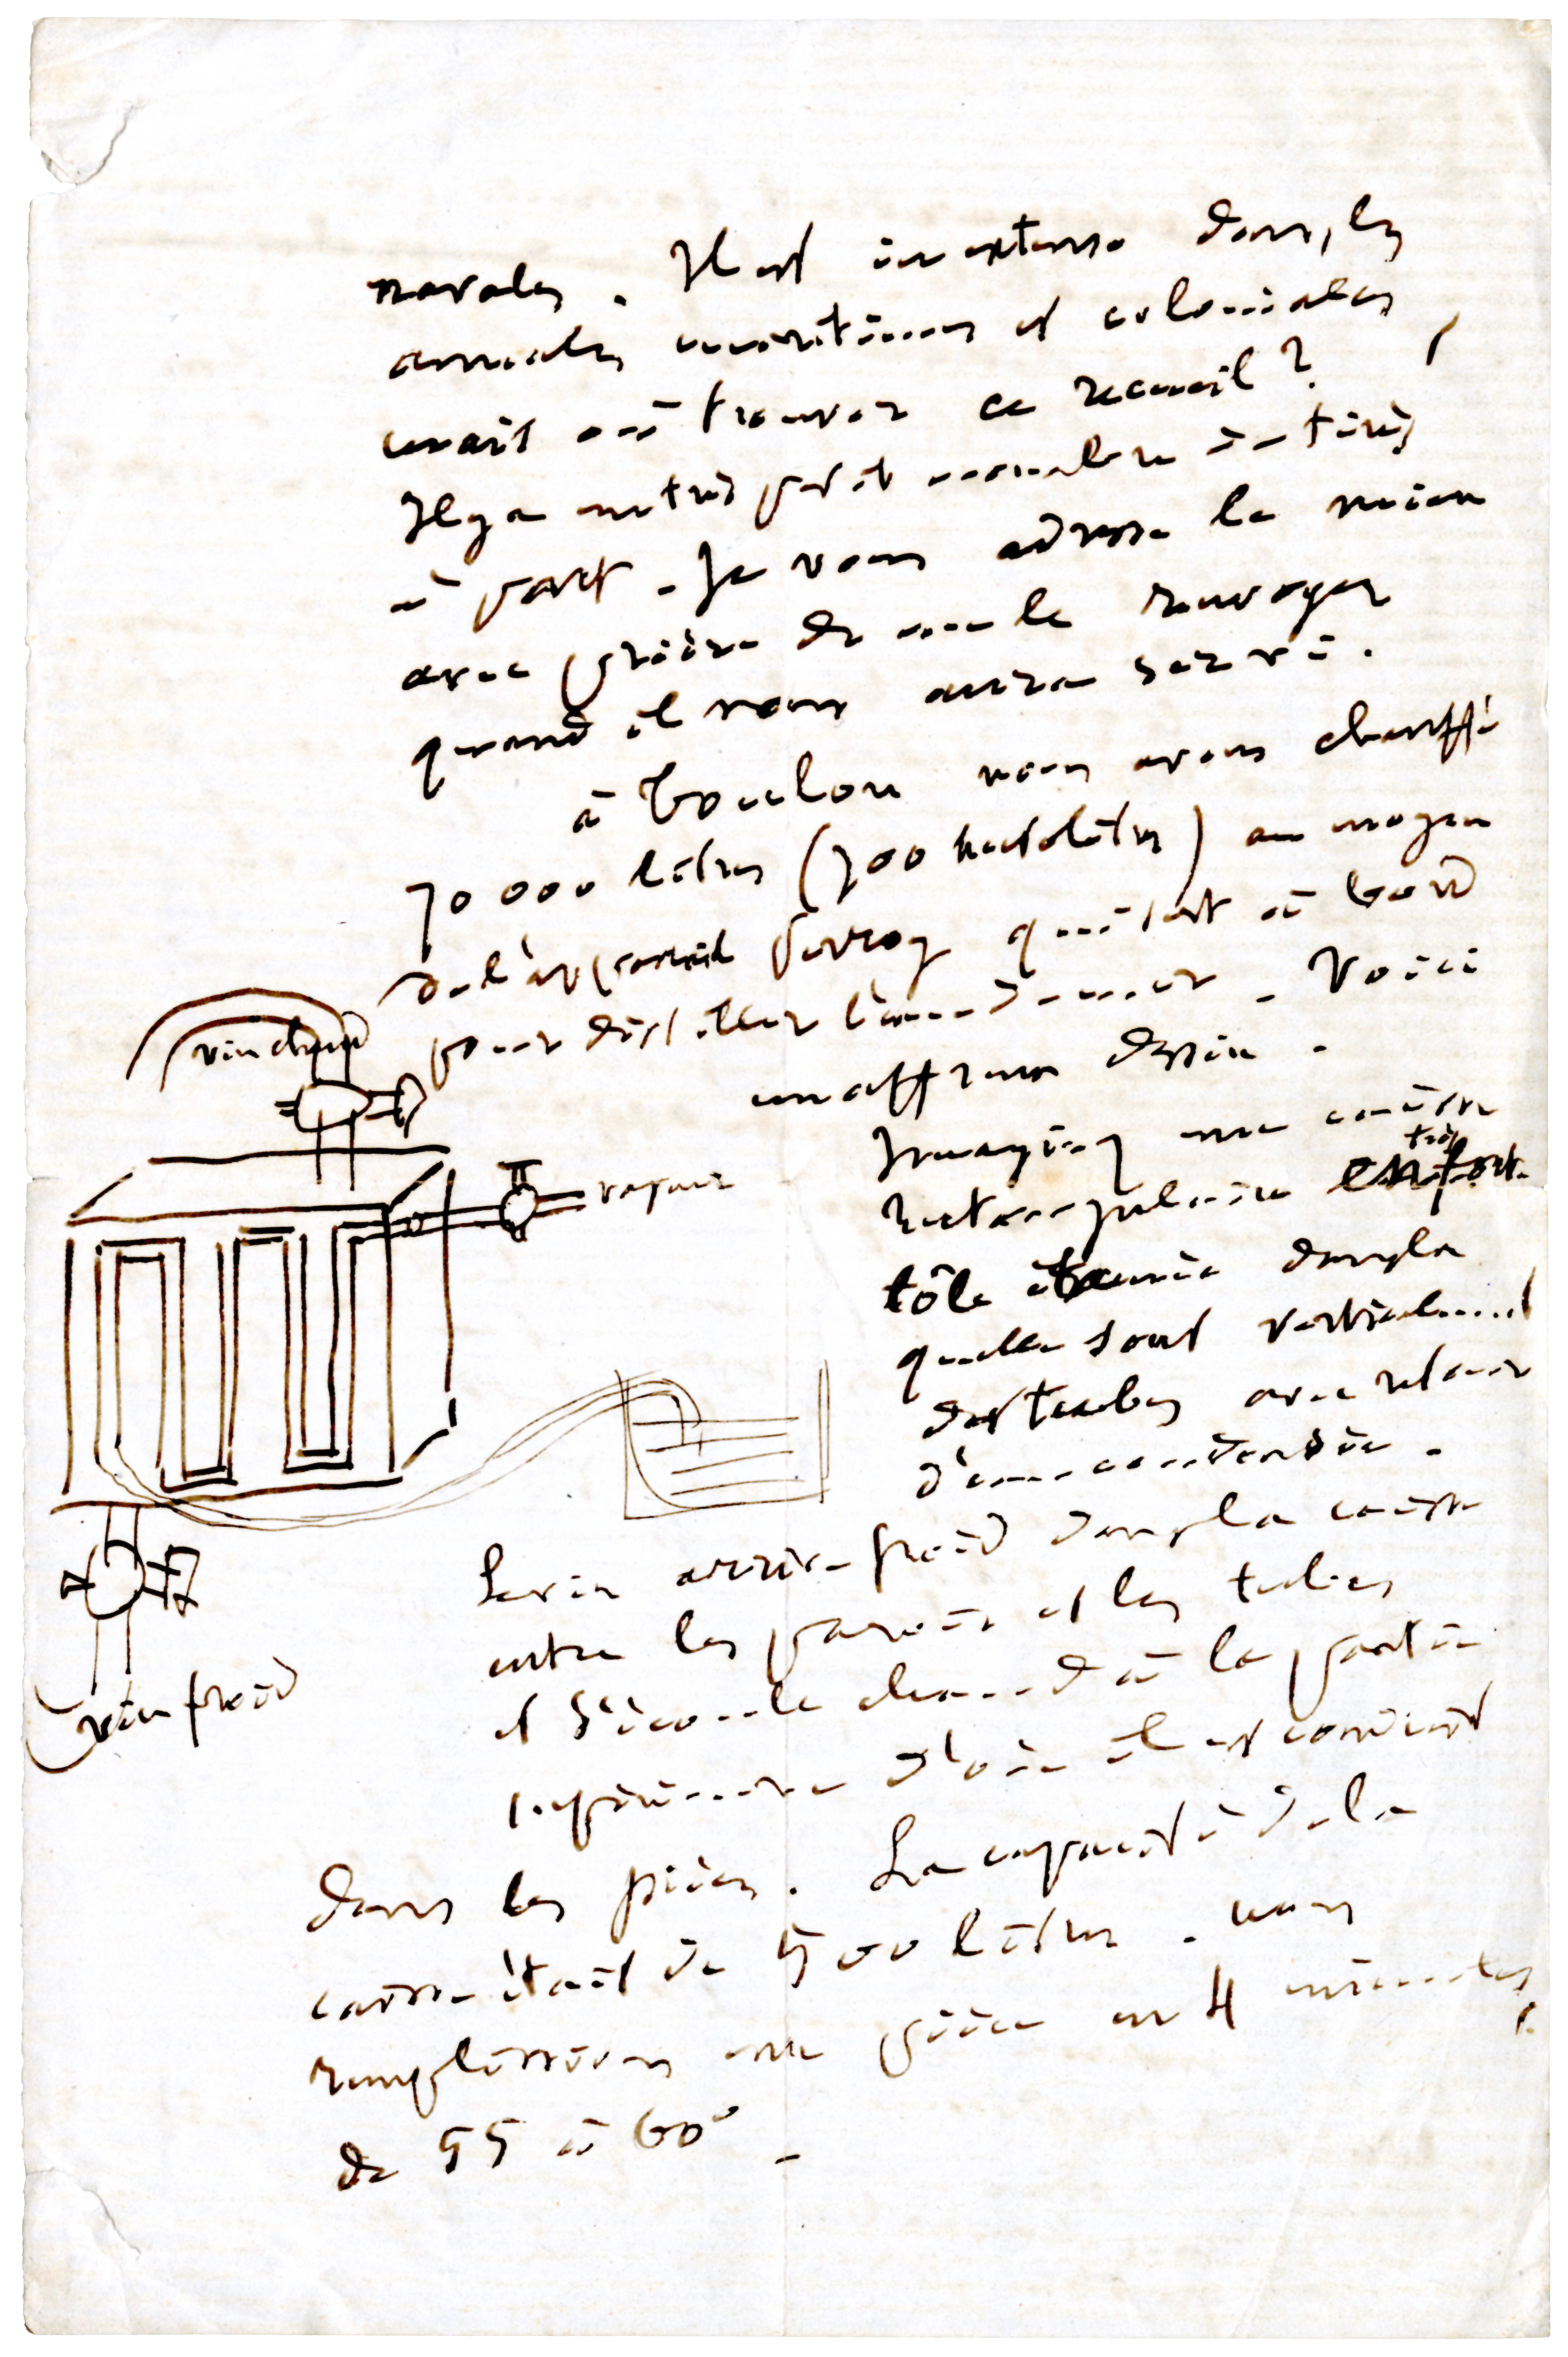 navales. Il est in extenso dans les
annales maritimes et coloniales
mais où trouver ce recueil ?
Il y a un très petit nombre de tirés
à part. Je vous adresse le mien
avec prière de me le renvoyer
quand il vous aura servi.
à Toulon nous avons chauffé
70 000 litres (700 hectolitres) au moyen
de l'appareil Perroy qui sert à bord
pour distiller l'eau de mer. Voici
un affreux dessin.
vin chaud
vapeur
vin froid
Imaginez une caisse
rectangulaire en très forte
tôle étamée dans la
quelle sont verticalement
des tubes avec retour
d'eau condensée.
Le vin arrive froid dans la caisse
entre les parois et les tubes
et s'écoule chaud à la partie
supérieure d'où il est conduit
dans les pièces. La capacité de la
caisse était de 500 litres. nous
remplissions une pièce en 4 minutes
de 55 à 60°